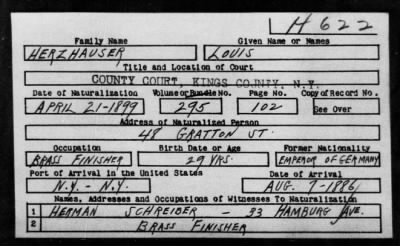 H 622
Family Name Given Name or Names
HERZHAUSER LOUIS
Title and Location of Court
COUNTY COURT, KINGS COUNTY, N.Y.
Date of Naturalization Volume or Bundle No. Page No. Copy of Record No.
APRIL 21-1899 295 102 See Over
Address of Naturalized Person
48 GRATTON ST.
Occupation Birth Date or Age Former Nationality
BRASS FINISHER 29 YRS. EMPEROR OF GERMANY
Port of Arrival in the United States Date of Arrival
N.Y. - N.Y. AUG. 7-1886
Names, Addresses and Occupations of Witnesses To Naturalization
1 HERMAN SCHREIBER - 33 HAMBURG AVE.
2 BRASS FINISHER